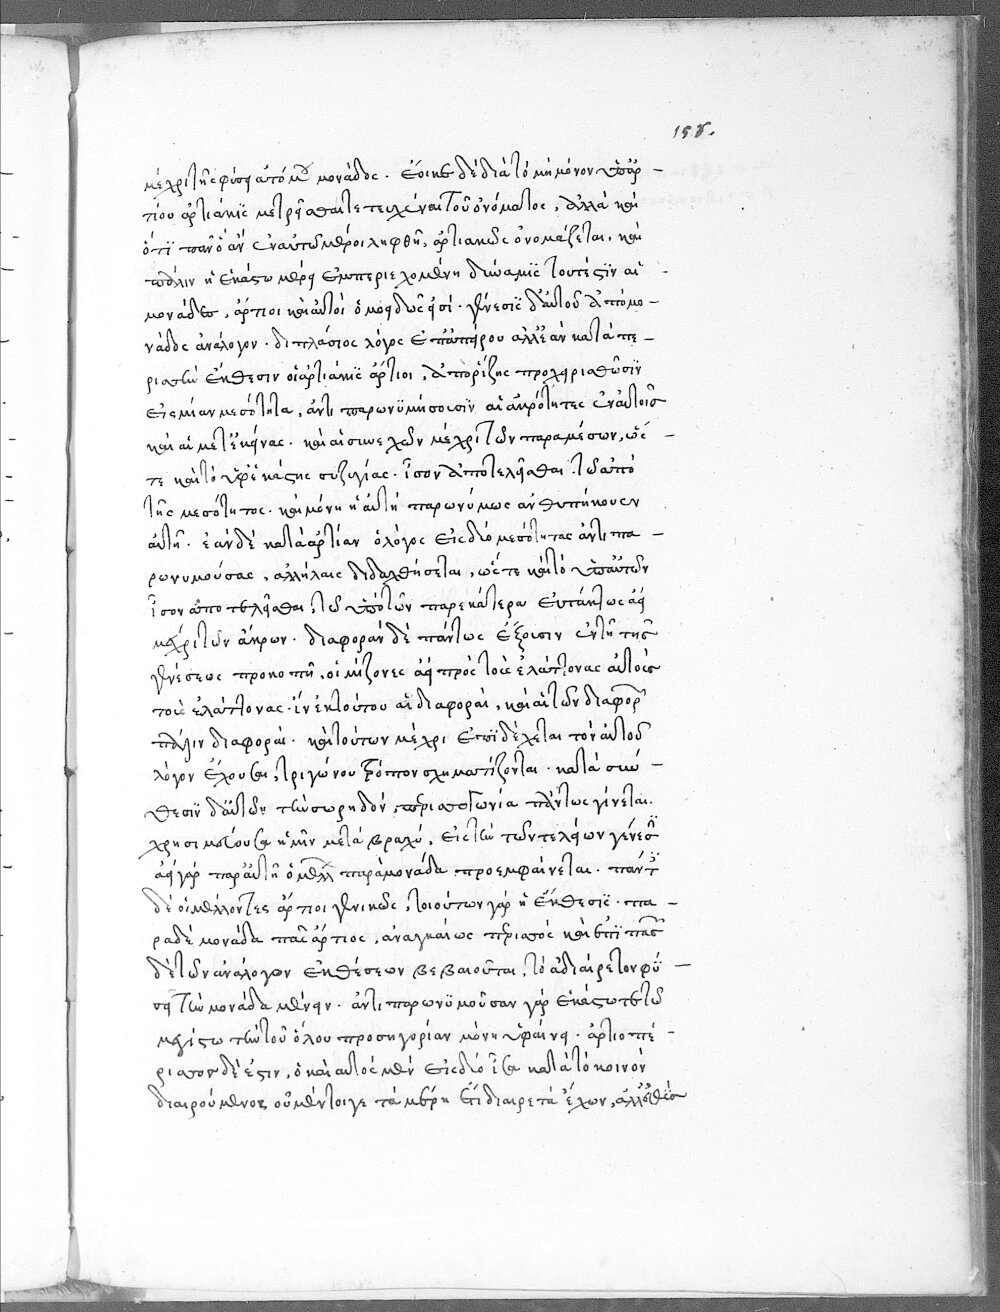 157.
μέχρι τῆς φύσει ἀτόμου μονάδος. ἔοικε δὲ διὰ τὸ μὴ μόνον ὑπὸ ἀρ-
τίου ἀρτιάκις μετρεῖσθαι τετευχέναι τοῦ ὀνόματος, ἀλλὰ καὶ
ὅτι πᾶν ὃ ἂν ἐν αὐτῷ μέρος ληφθῇ, ἀρτιακῶς ὀνομάζεται, καὶ
πάλιν ἡ ἑκάστῳ μέρει ἐμπεριεχομένη δύναμις τουτέστιν αἱ
μονάδες, ἄρτιοι καὶ αὐτοὶ ὁμοειδῶς εἰσί. γένεσις δ' αὐτοῦ ἀπὸ μο-
νάδος ἀνάλογον. διπλάσιος λόγος ἐπ' ἄπειρον ἀλλ' ἐὰν κατὰ πε-
ριττὴν ἔκθεσιν οἱ ἀρτιάκις ἄρτιοι, ἀπὸ ῥίζης προχειρισθῶσιν
εἰς μίαν μεσότητα, ἀντιπαρωνυμήσουσιν αἱ ἀκρότητες ἑαυταῖς
καὶ αἱ μετ' ἐκείνας. καὶ αἱ συνεχῶν μέχρι τῶν παραμέσων, ὥσ-
τε καὶ τὸ ὑφ' ἑκάστης συζυγίας. ἴσον ἀποτελεῖσθαι τῷ ἀπὸ
τῆς μεσότητος. καὶ μόνη ἡ αὐτὴ παρωνύμως ἀνθυπήκουσεν
αὐτῇ. ἐὰν δὲ κατὰ ἀρτίαν ὁ λόγος εἰς δύο μεσότητας ἀντιπα-
ρωνυμούσας, ἀλλήλαις διδαχθήσεται, ὥστε καὶ τὸ ὑπ' αὐτῶν
ἴσον ἀποτελεῖσθαι τῷ ὑπὸ τῶν παρ' ἑκάτερα εὐτάκτως ἀεὶ
μέχρι τῶν ἄκρων. διαφορὰν δὲ πάντως ἕξουσιν ἐν τῇ τῆς
γενέσεως προκοπῇ, οἱ μείζονες ἀεὶ πρὸς τοὺς ἐλάττονας αὐτοὺς
τοὺς ἐλάττονας. ἵν' ἐκ τούτου αἱ διαφοραί, καὶ αἱ τῶν διαφορῶν
πάλιν διαφοραί. καὶ τούτων μέχρι ἐπιδέχεται τὸν αὐτὸν
λόγον ἔχουσαι τριγώνου τρόπον σχηματίζονται. κατὰ σύν-
θεσιν δ' αὐτῶν τὴν σωρηδόν, περισσογωνία πάντως γίνεται.
χρησιμεύουσα ἡμῖν μετὰ βραχύ, εἰς τὴν τῶν τελείων γένεσιν
ἀεὶ γὰρ παρ' αὐτῇ ὁ μέλλων παρὰ μονάδα προεμφαίνεται. πάντες
δὲ οἱ μέλλοντες ἄρτιοι γενικῶς, τοιούτων γὰρ ἡ ἔκθεσις. πα-
ρὰ δὲ μονάδα πᾶς ἄρτιος, ἀναγκαίως περιττός καὶ ἐπὶ πασῶν
δὲ τῶν ἀναλόγων ἐκθέσεων βεβαιοῦται, τὸ ἀδιαίρετον φύ-
σει τὴν μονάδα μένειν. ἀντιπαρωνυμοῦσαν γὰρ ἑκάστοτε τῷ
μεγίστῳ τὴν τοῦ ὅλου προσηγορίαν μόνη ὑφαίνει. ἀρτιοπέ-
ριττος δέ ἐστιν, ὁ καὶ αὐτὸς μὲν εἰς δύο ἴσα κατὰ τὸ κοινὸν
διαιρούμενος οὐ μέντοιγε τὰ μέρη ἔτι διαιρετὰ ἔχων, ἀλλ' εὐθὺς